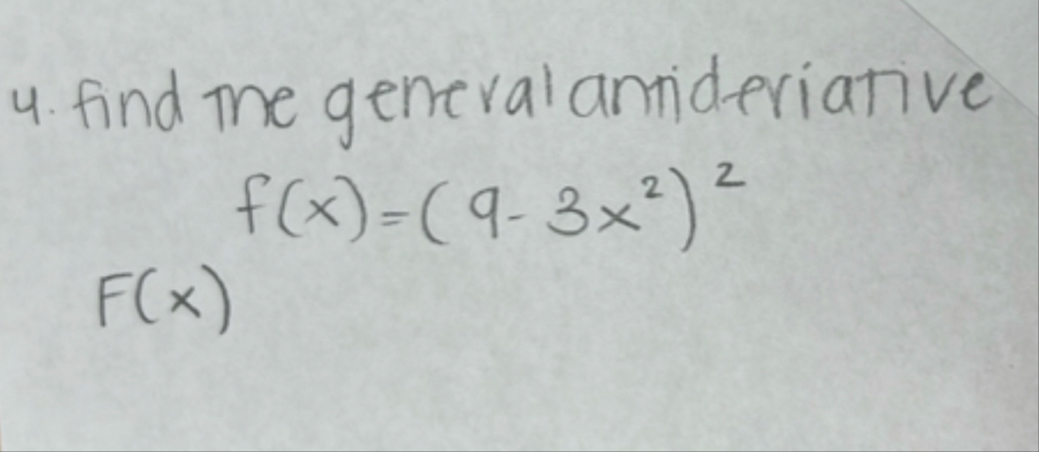 4. find the general antideriative
f(x)=(9-3x²)²
F(x)